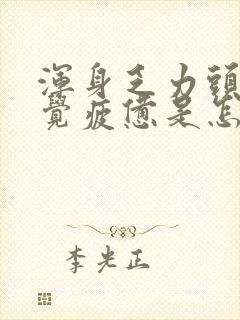 渾身乏力頭
覺疲憊是怎
李光正